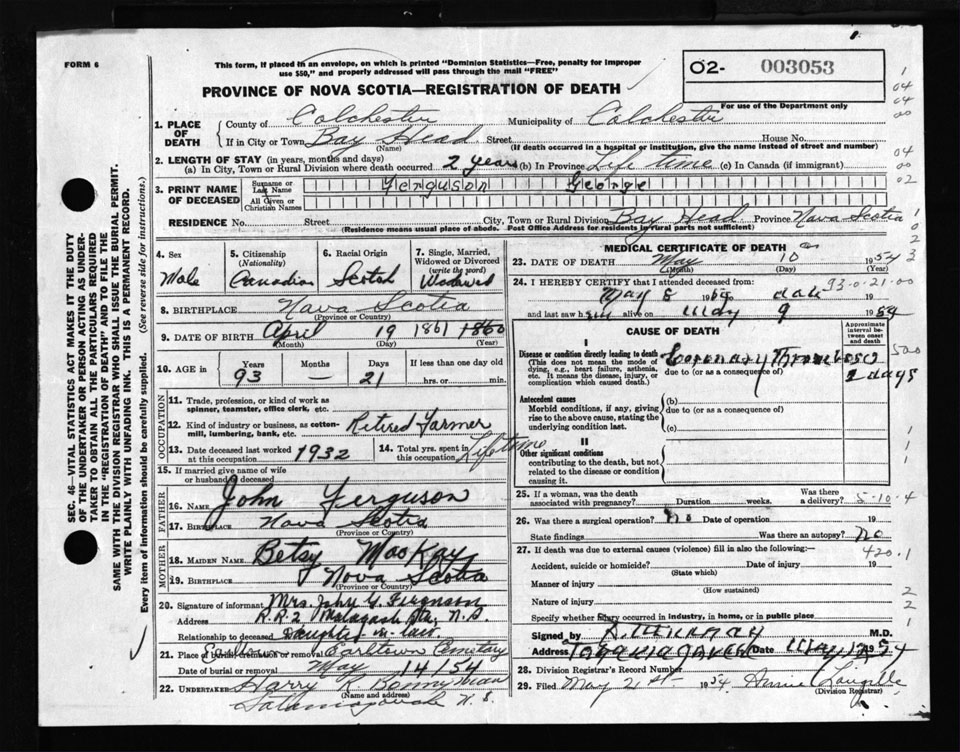 FORM 6
This form, if placed in an envelope, on which is printed "Dominion Statistics—Free, penalty for improper
use $50," and properly addressed will pass through the mail "FREE"
O2- 003053
For use of the Department only
PROVINCE OF NOVA SCOTIA—REGISTRATION OF DEATH
SEC. 46—VITAL STATISTICS ACT MAKES IT THE DUTY
OF THE UNDERTAKER OR PERSON ACTING AS UNDER-
TAKER TO OBTAIN ALL THE PARTICULARS REQUIRED
IN THE "REGISTRATION OF DEATH" AND TO FILE THE
SAME WITH THE DIVISION REGISTRAR WHO SHALL ISSUE THE BURIAL PERMIT.
WRITE PLAINLY WITH UNFADING INK. THIS IS A PERMANENT RECORD.
Every item of information should be carefully supplied. (See reverse side for instructions.)
1. PLACE OF DEATH
County of Colchester Municipality of Colchester
If in City or Town Bay Head Street House No.
(Name) (If death occurred in a hospital or institution, give the name instead of street and number)
2. LENGTH OF STAY (in years, months and days)
(a) In City, Town or Rural Division where death occurred 2 years (b) In Province Life time (c) In Canada (if immigrant)
3. PRINT NAME OF DECEASED
Surname or Last Name Ferguson George
All Given or Christian Names
RESIDENCE No. Street City, Town or Rural Division Bay Head Province Nova Scotia
(Residence means usual place of abode. Post Office Address for residents in rural parts not sufficient)
4. Sex Male
5. Citizenship (Nationality) Canadian
6. Racial Origin Scotch
7. Single, Married, Widowed or Divorced (write the word) Widowed
8. BIRTHPLACE Nova Scotia
(Province or Country)
9. DATE OF BIRTH April 19 1861 1860
(Month) (Day) (Year)
10. AGE in Years 93 Months — Days 21 If less than one day old hrs. or min.
OCCUPATION
11. Trade, profession, or kind of work as
spinner, teamster, office clerk, etc.
12. Kind of industry or business, as cotton-
mill, lumbering, bank, etc. Retired Farmer
13. Date deceased last worked at this occupation 1932
14. Total yrs. spent in this occupation Lifetime
15. If married give name of wife
or husband of deceased
FATHER
16. NAME John Ferguson
17. Birthplace Nova Scotia
(Province or Country)
MOTHER
18. MAIDEN NAME Betsy MacKay
19. Birthplace Nova Scotia
(Province or Country)
20. Signature of informant Mrs. John G. Ferguson
Address R.R.2 Malagash Stn. N.S.
Relationship to deceased Daughter in law
21. Place of burial, cremation or removal Earltown Cemetary
Date of burial or removal May 14/54
22. UNDERTAKER Harry K.
(Name and address)
Tatamagouche N.S.
MEDICAL CERTIFICATE OF DEATH
23. DATE OF DEATH May 10 1954
(Month) (Day) (Year)
24. I HEREBY CERTIFY that I attended deceased from: 93-0-21-00
May 8 1954 date
and last saw him alive on May 9 1954
CAUSE OF DEATH
Approximate interval between onset and death
I
Disease or condition directly leading to death
(This does not mean the mode of
dying, e.g., heart failure, asthenia,
etc. It means the disease, injury, or
complication which caused death.)
(a) Coronary Thrombosis
due to (or as a consequence of) 2 days
Antecedent causes
Morbid conditions, if any, giving
rise to the above cause, stating the
underlying condition last.
(b)
due to (or as a consequence of)
(c)
II
Other significant conditions
contributing to the death, but not
related to the disease or condition
causing it.
25. If a woman, was the death
associated with pregnancy? Duration weeks. Was there a delivery? 5-10-4
26. Was there a surgical operation? no Date of operation 19
State findings Was there an autopsy? No
27. If death was due to external causes (violence) fill in also the following:— 420.1
Accident, suicide or homicide? Date of injury 19
(State which)
Manner of injury
(How sustained)
Nature of injury
Specify whether injury occurred in industry, in home, or in public place
Signed by M.D.
Address Tatamagouche Date May 1954
28. Division Registrar's Record Number
29. Filed May 21st 1954 Annie Langille
(Division Registrar)